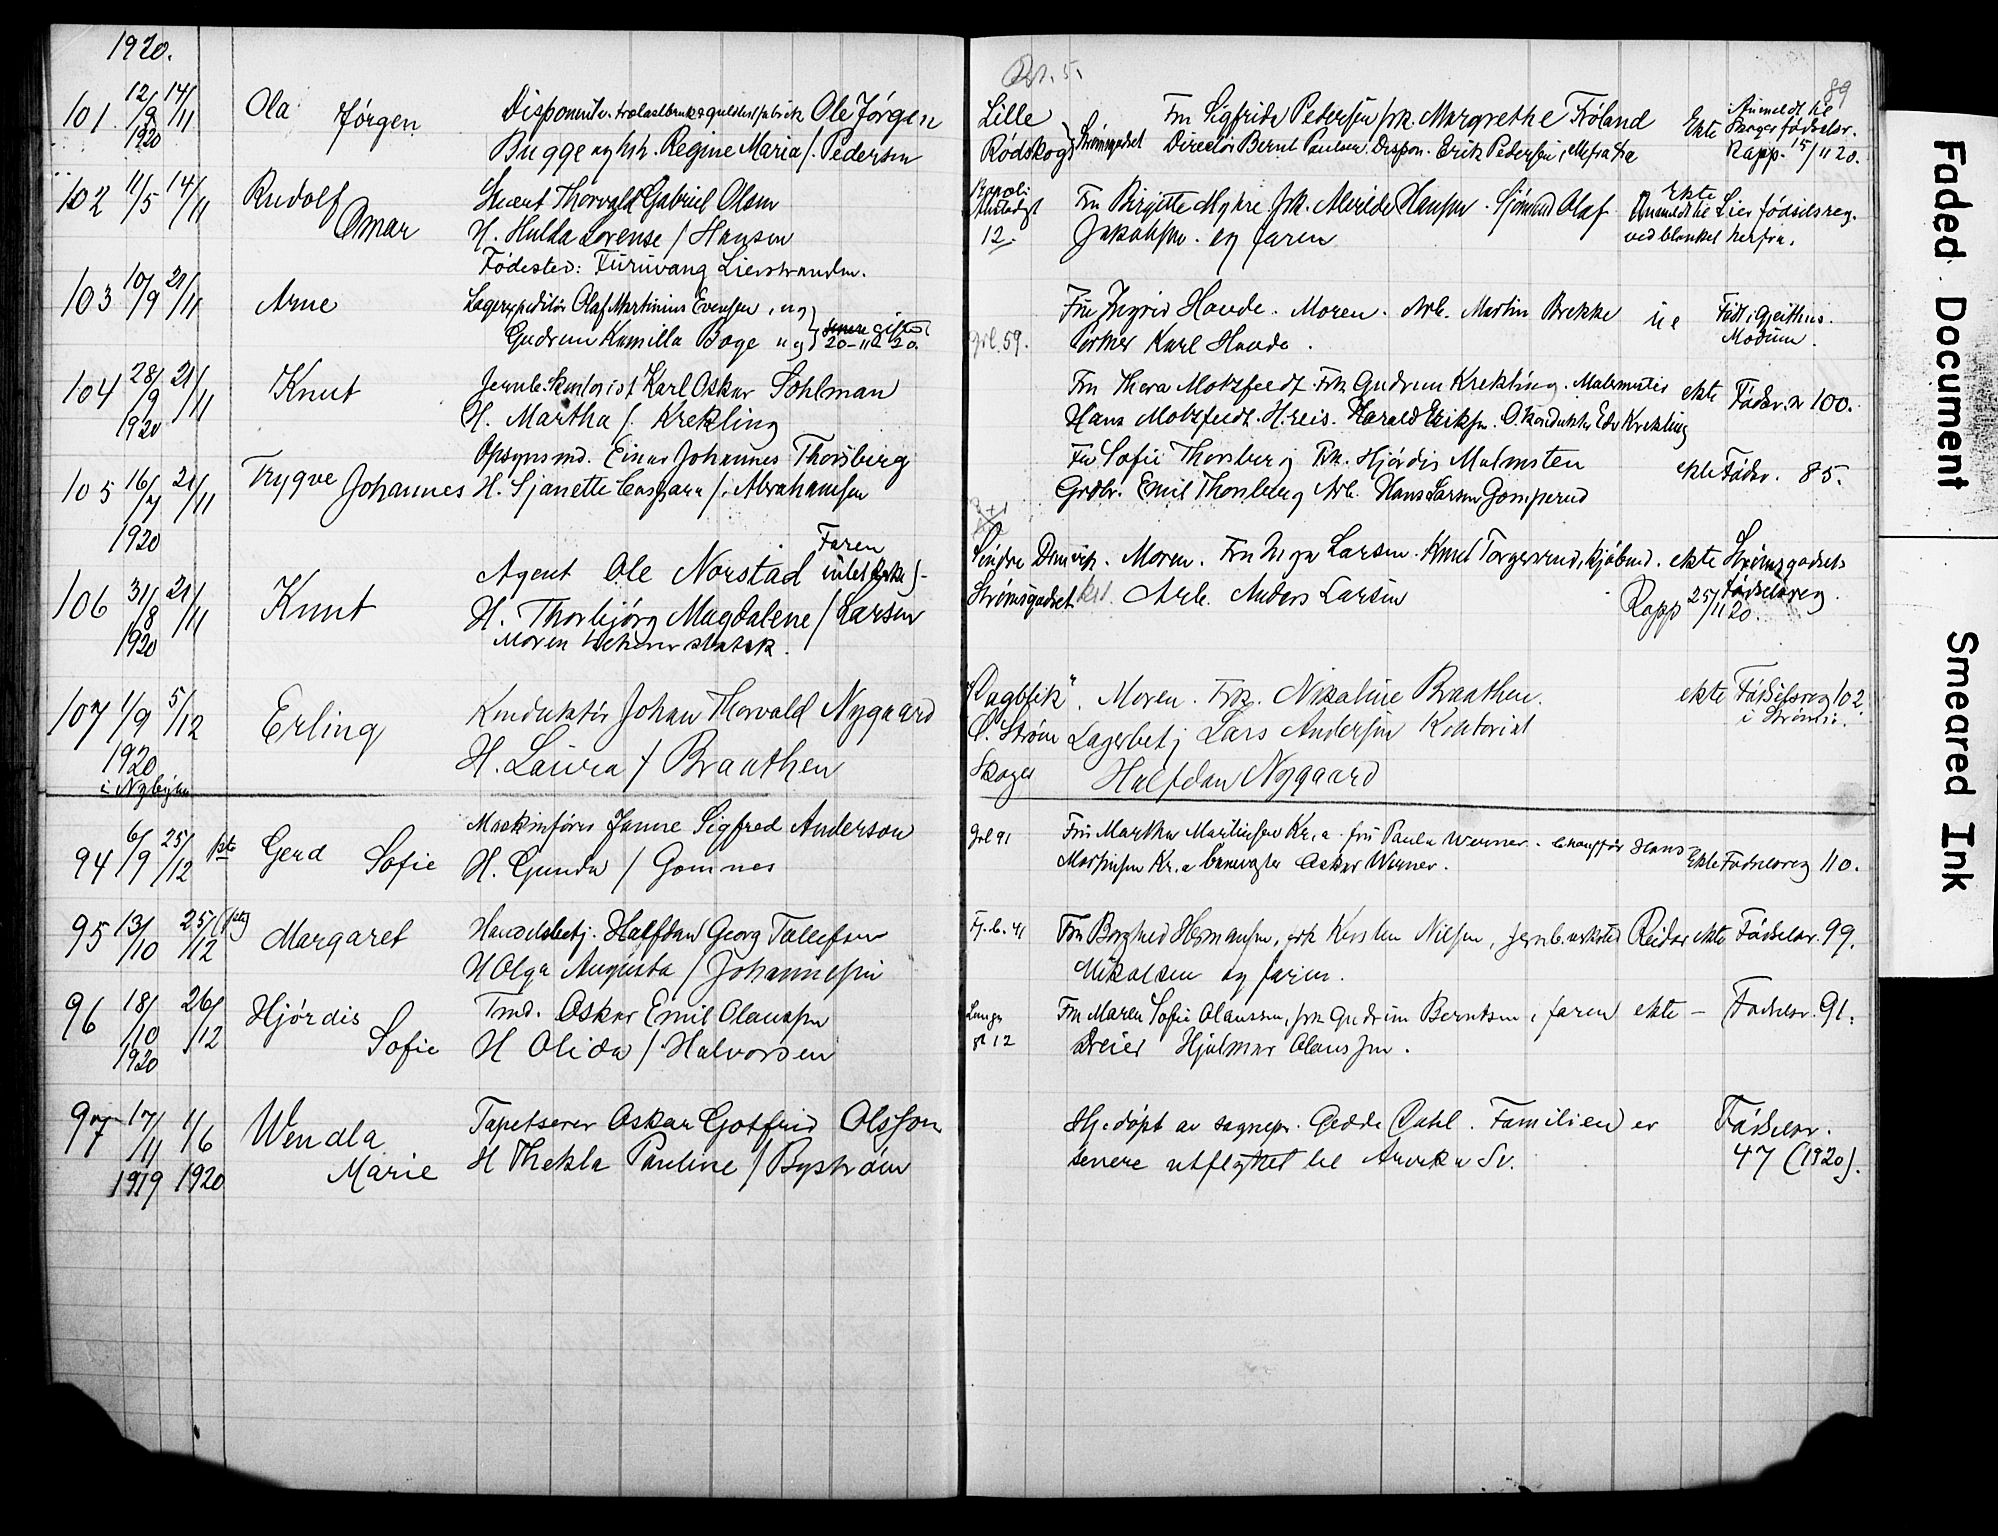 1920.
89
101 12/9 14/11 Ola Jørgen
1920
Ole Jørgen
Bugge og h.h. Regine Maria f. Pedersen
Lille
Rødskog Strømsgodset
Fru Sigfride Pedersen frk. Margrethe Frøland
Director Bernt Paulsen. Dispon. Erik Pedersen,
Ekte Anmeldt til
fødselsr.
Rapp. 15/11 20.
102 11/5 14/11 Rudolf Omar
Thorvald Gabriel Olsen
H. Hulda Lorense f. Hansen
Fødested: Furuvang Lierstranden.
12.
Fru Birgitte Myhre frk. Hansen. Sjømand Olaf
Jakobsen. og faren
Ekte
Anmeldt til Lier fødselsreg.
ved blanket herfra.
103 10/9 21/11 Arne
Lagerexpeditør Olaf Martinius Evensen, ug
Gudrun Kamilla Boge ug gifted
20-11 20.
59.
Fru Ingrid Haode. Moren. Arb. Martin Brekke
Portner Karl Haode.
ue
Født i Gjeithus.
Modum.
104 28/9 21/11 Knut
1920
Jernb. Kontorist Karl Oskar Sohlman
H. Martha f. Krekling
Fru Thora Motzfeldt Frk Gudrun Krekling. Malermester
Hans Motzfeldt. H.reis. Harald Eriksen. Edv Krekling
ekte Fødsr. nr 100.
105 16/7 21/11 Trygve Johannes
1920
Opsynsmd. Einar Johannes Thorsberg
H. Sjanette Caspara f. Abrahamsen
Fru Sofie Thorsberg Frk. Hjørdis Malmsten
Grdbr. Emil Thorsberg Arb. Hans Larsen Gomperud
ekte Fødsr. 85.
106 31/8 21/11 Knut
1920
Faren
Agent Ole Norstad
H. Thorbjørg Magdalene f. Larsen
Moren tilhører statsk.
Søndre
Strømsgodset
Moren. Fru Inga Larsen. Knut Torgersrud, kjøbmd.
Arb. Anders Larsen
ekte Strømsgodsets
fødselsreg.
Rapp 25/11 20.
107 1/9 5/12 Erling
1920
i Nybyen
Konduktør Johan Thorvald Nygaard
H. Laura f. Braathen
Ø. Strøm
Skoger
Moren. Frk. Nikoline Braathen.
Lagerbetj Lars Andersen Kontorist
Halfdan Nygaard
ekte Fødselsreg 102
i Strømsø.
94 6/9 25/12 Gerd Sofie
Maskinfører Janne Sigfred Anderson
H. Gunda f. Gomnes
Grl 91
Fru Martha Martinsen Kr.a. fru Paula Werner. Chauffør Hans
Martinsen Kr.a Oskar Werner.
Ekte Fødselsreg 110.
95 13/10 25/12 Margaret
Handelsbetj. Halfdan Georg Tollefsen
H Olga Augusta f. Johannesen
Fru Borghild Hermansen, frk Kirsten Nilsen, Reidar
Nikolsen og faren.
ekte Fødselsr. 99.
96 18/10 26/12 Hjørdis Sofie
1920
Tmd. Oskar Emil Olaussen
H Olida f. Halvorsen
12
Fru Maren Sofie Olaussen, frk Gudrun Berntsen, faren
Dreier Hjalmar Olaussen.
ekte – Fødselsr. 91.
97 17/11 1/6 Wendla Marie
1919 1920
Tapetserer Oskar Gotfrid Olsson
H Thekla Pauline f. Byström
Hj.døpt av sognepr. Gedde Dahl. Familien er
senere utflyttet til Arvika Sv.
Fødselsr.
47 (1920).
Faded Document
Smeared Ink